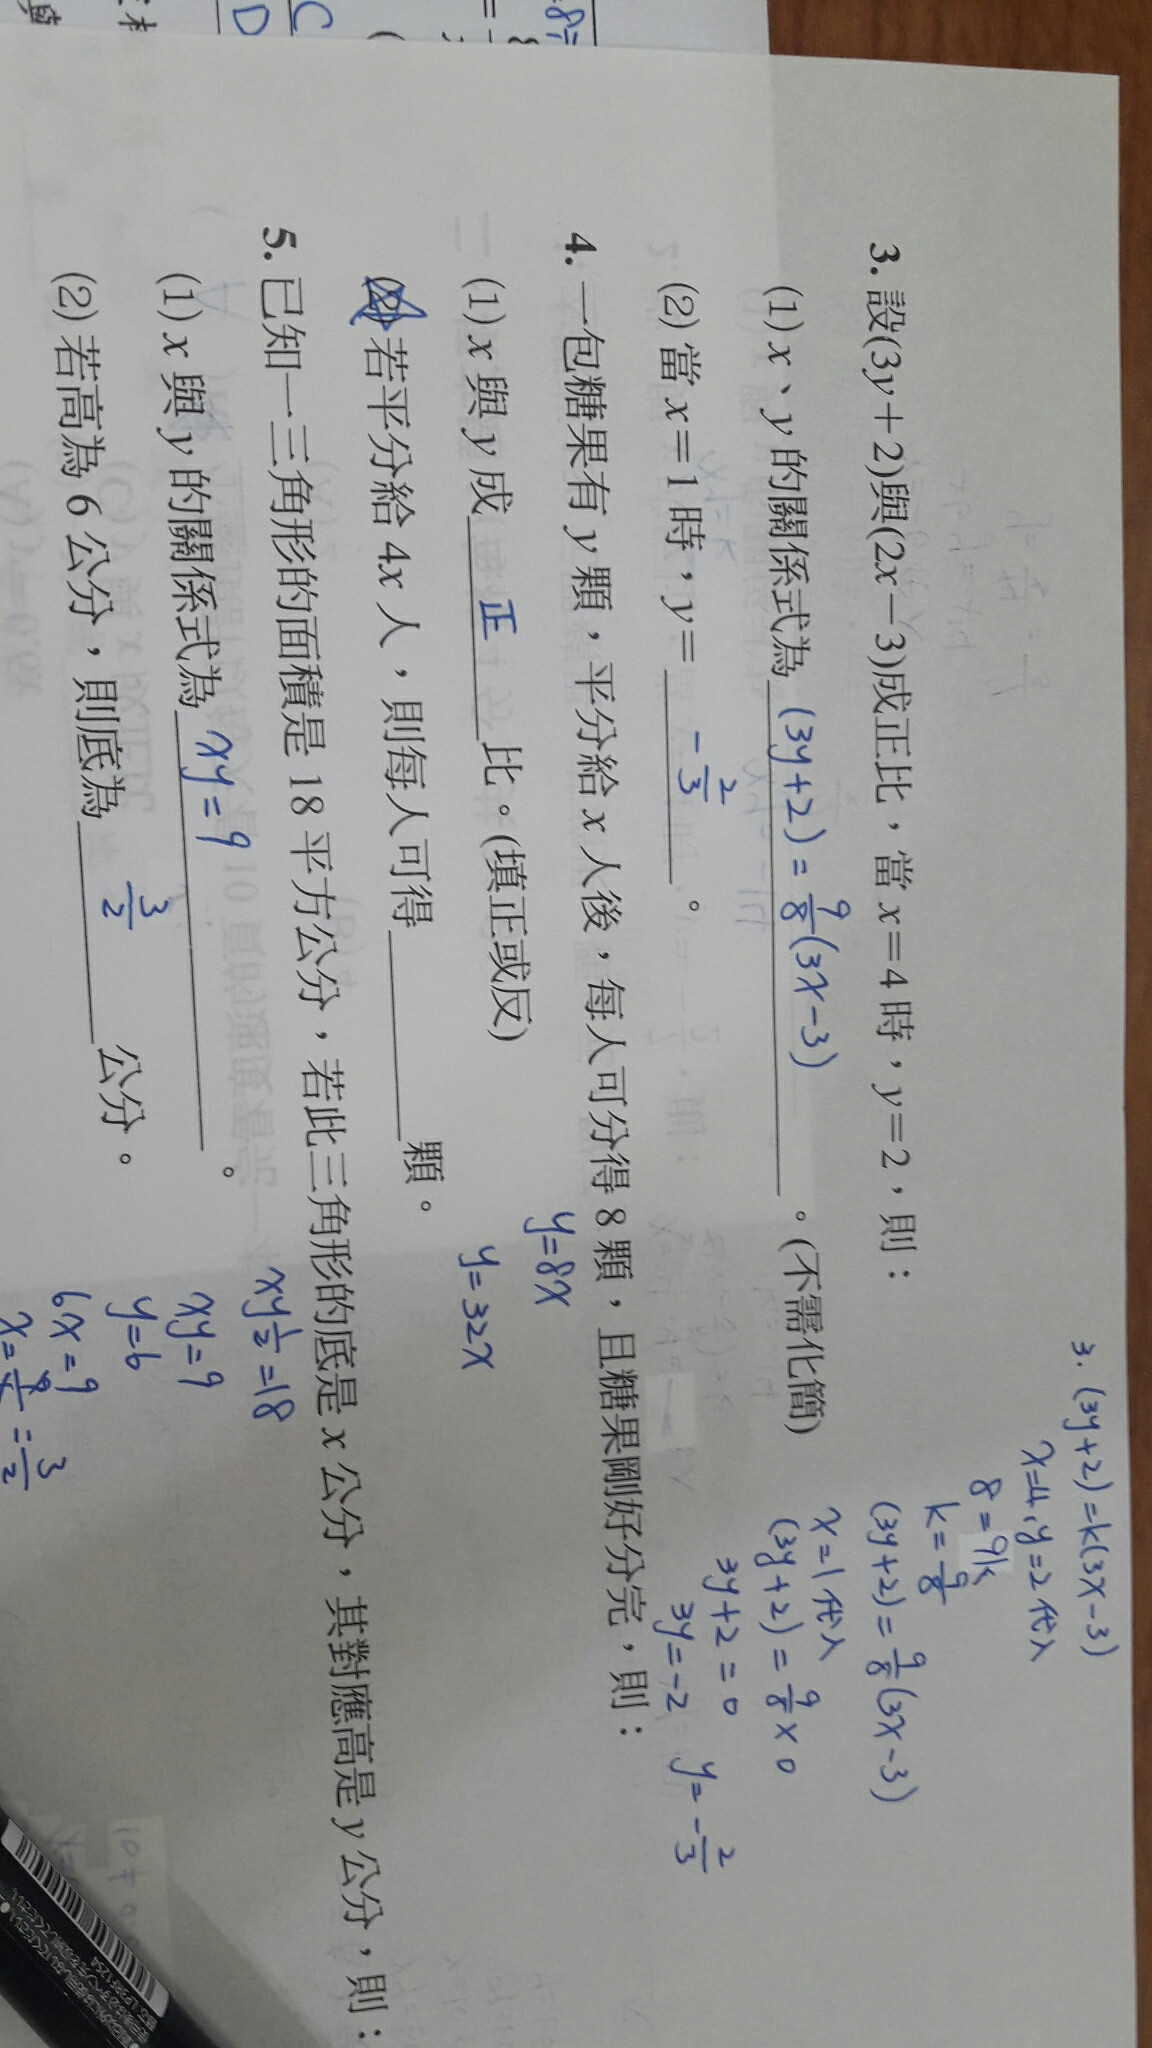 3. 設(3y+2)與(2x-3)成正比，當 x=4 時，y=2，則：
(1) x、y 的關係式為 (3y+2) = 9/8 (3x-3) 。(不需化簡)
(2) 當 x=1 時，y= -2/3 。
4. 一包糖果有 y 顆，平分給 x 人後，每人可分得 8 顆，且糖果剛好分完，則：
(1) x 與 y 成 正 比。(填正或反)
(2) 若平分給 4x 人，則每人可得 顆。
5. 已知一三角形的面積是 18 平方公分，若此三角形的底是 x 公分，其對應高是 y 公分，則：
(1) x 與 y 的關係式為 xy=9 。
(2) 若高為 6 公分，則底為 3/2 公分。
3. (3y+2)=k(3x-3)
x=4, y=2 代入
8=9k
k=9/8
(3y+2)=9/8(3x-3)
x=1 代入
(3y+2)=9/8×0
3y+2=0
3y=-2 y=-2/3
y=8x
y=32x
xy 1/2=18
xy=9
y=6
6x=9
3/2